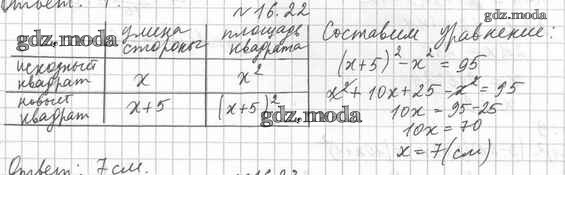 Ответ:
№16.22
gdz.moda
длина стороны
площадь квадрата
исходный квадрат x x²
новый квадрат x+5 (x+5)²
gdz.moda
gdz.moda
Составим уравнение:
(x+5)² - x² = 95
x² + 10x + 25 - x² = 95
10x = 95-25
10x = 70
x = 7 (см)
Ответ: 7 см.
№16.23